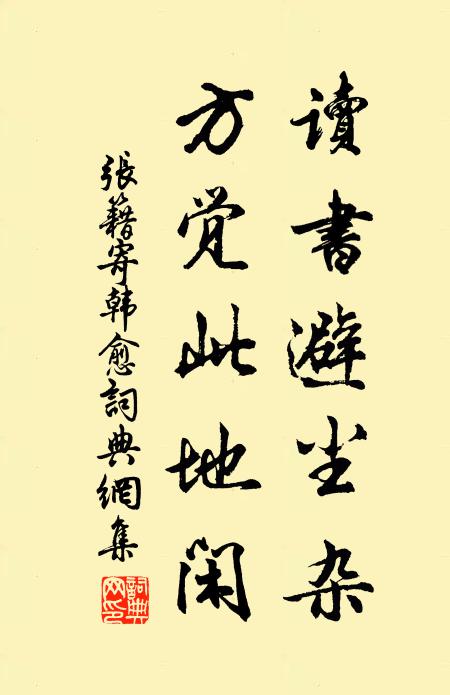 读书避尘杂
方觉此地闲
張籍寄韩愈詞典網集
詞典网印